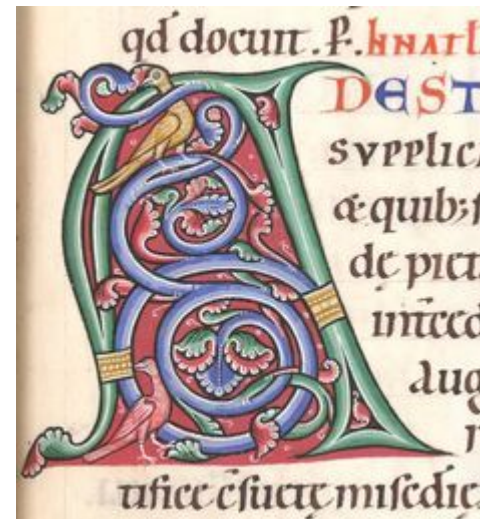 qd docuit. P. hNATI
ADEST
SVPPLIC
æ quib; f
de piet
int̄ced
aug
tifice c̄suetę miſcdię